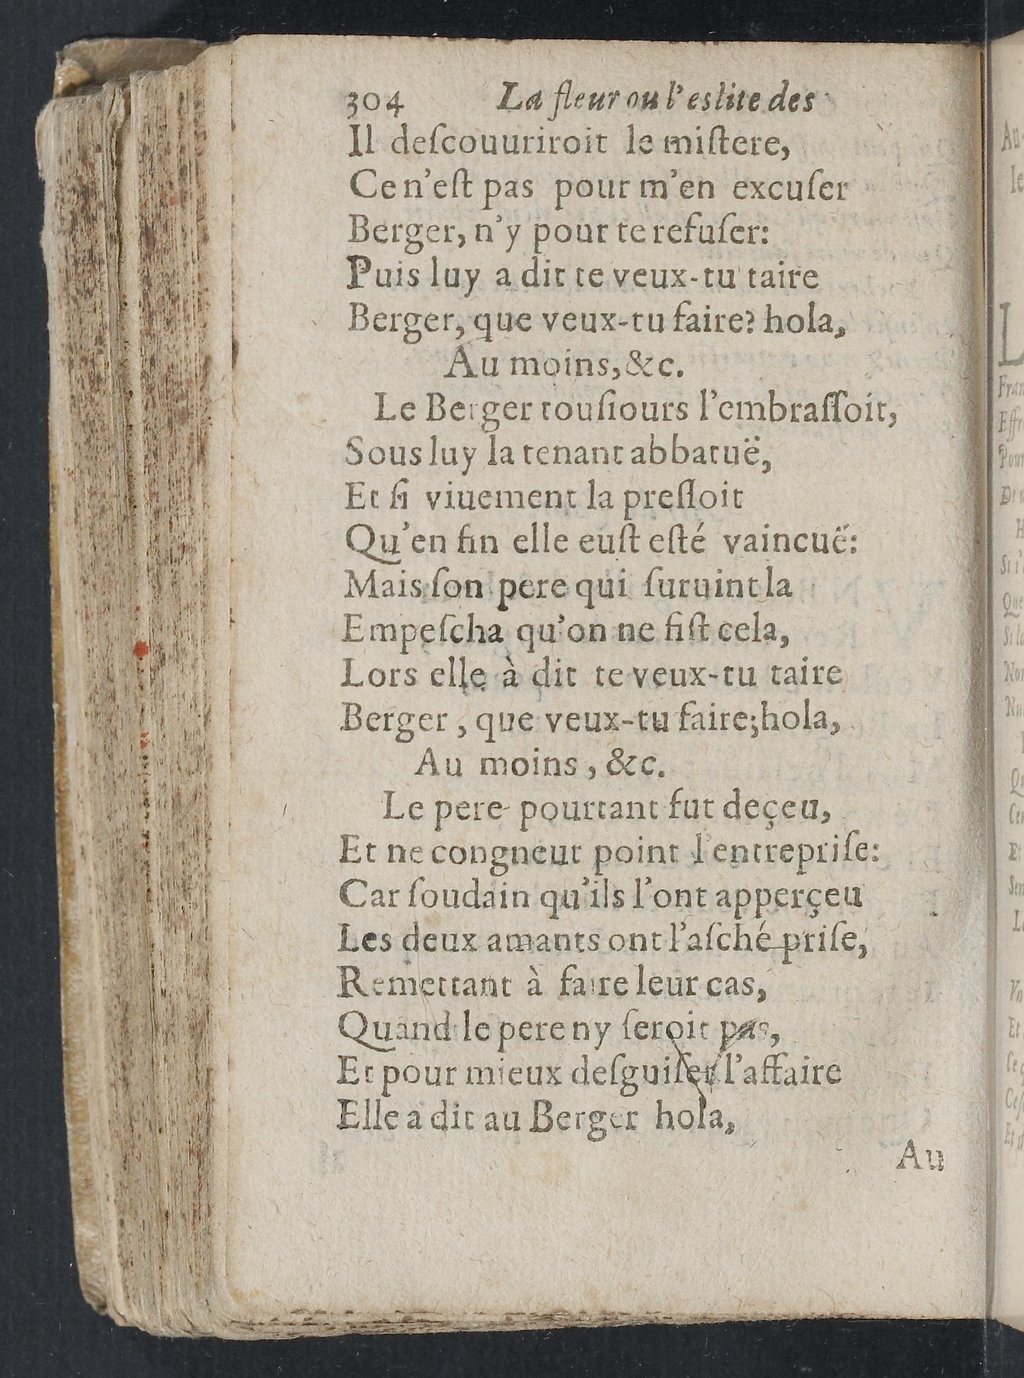 304 La fleur ou l'eslite des
Il deſcouuriroit le miſtere,
Ce n'eſt pas pour m'en excuſer
Berger, n'y pour te refuſer:
Puis luy a dit te veux-tu taire
Berger, que veux-tu faire? hola,
Au moins, &c.
Le Berger touſiours l'embraſſoit,
Sous luy la tenant abbatuë,
Et ſi viuement la preſſoit
Qu'en fin elle euſt eſté vaincuë:
Mais ſon pere qui ſuruint la
Empeſcha qu'on ne fiſt cela,
Lors elle à dit te veux-tu taire
Berger, que veux-tu faire; hola,
Au moins, &c.
Le pere pourtant fut deçeu,
Et ne congneut point l'entrepriſe:
Car ſoudain qu'ils l'ont apperçeu
Les deux amants ont l'aſché priſe,
Remettant à faire leur cas,
Quand le pere ny ſeroit pas,
Et pour mieux deſguiſer l'affaire
Elle a dit au Berger hola,
Au